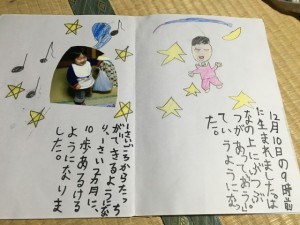 12月10日の9時前
に生まれました。は
なの上にぶつぶ
つがあって
ていうようになっ
た。
一さいごろからたっち
ができるようにな
り、一さい7カ月に、
10歩あるける
ようになりま
した。